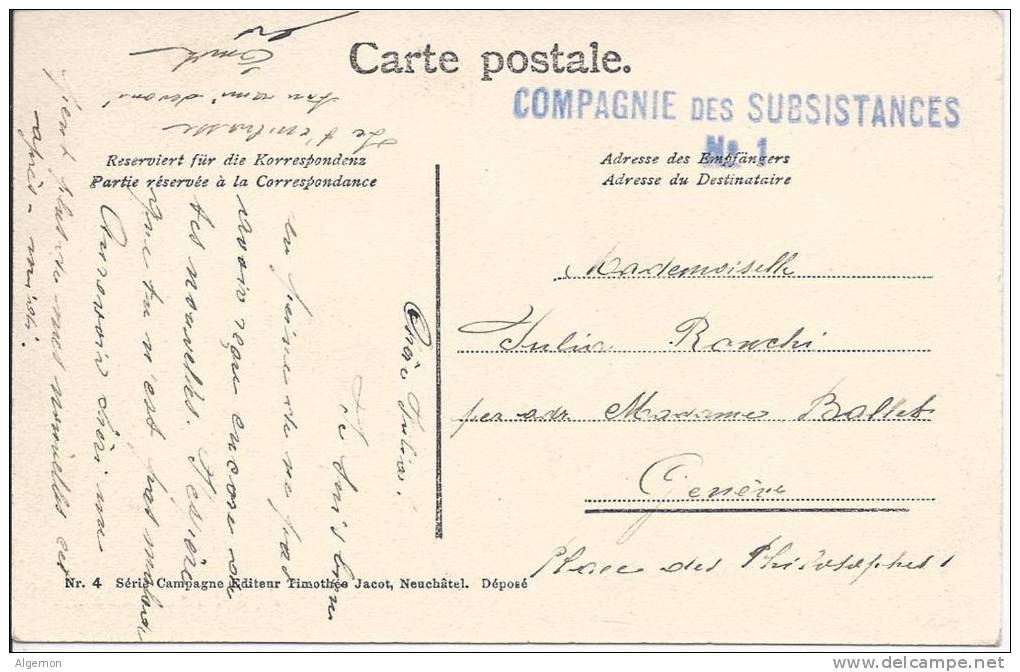 Carte postale.
COMPAGNIE DES SUBSISTANCES
No 1
Reserviert für die Korrespondenz
Partie réservée à la Correspondance
Adresse des Empfängers
Adresse du Destinataire
Mademoiselle
Julia Ronchi
per adr. Madame Ballet
Genève
Place des Philosophes 1
Chère Julia!
Je suis
en peine de ne pas
avoir reçu encore de
tes nouvelles. J'espère
que tu n'es pas malade
Aurevoir chéri une
plus de mes nouvelles cet
après-midi.
Je t'embrasse
ton ami
Nr. 4 Série Campagne Editeur Timothée Jacot, Neuchâtel. Déposé
Algemon
www.delcampe.net